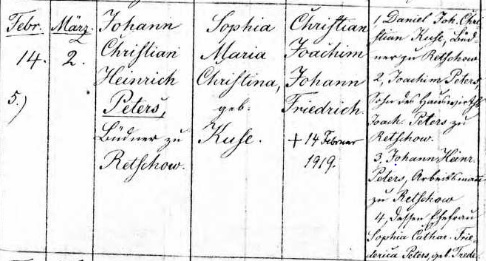 Febr.
14.
5.)
März.
2.
Johann
Christian
Heinrich
Peters,
Büdner zu
Retschow.
Sophia
Maria
Christina,
geb:
Kuse.
Christian
Joachim
Johann
Friedrich.
+ 14 Februar
1919.
1, Daniel Joh. Chri-
stian Kuse, Büd-
ner zu Retschow
2, Joachim Peters,
Sohn des Hauswirths
Joach. Peters zu
Retschow.
3, Johann Heinr.
Peters, Arbeitsmann
zu Retschow
4, dessen Ehefrau
Sophia Cathar. Frie-
derica Peters, geb.